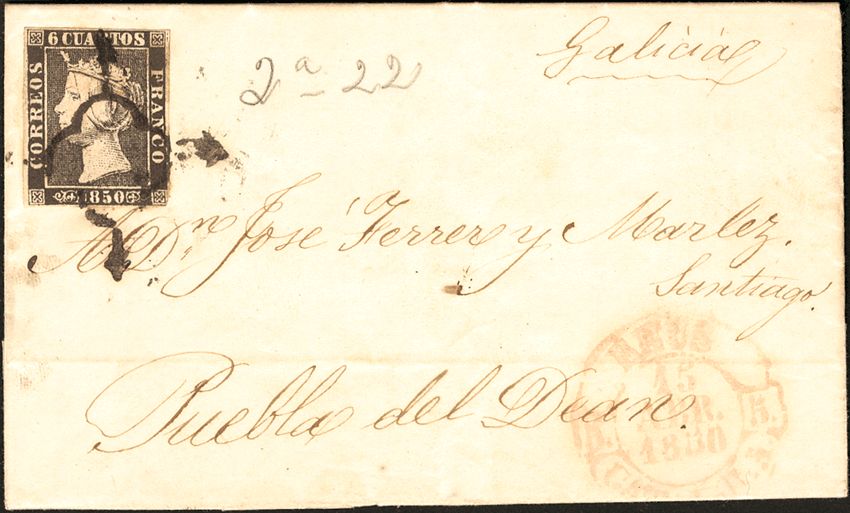 6 CUARTOS
CORREOS
FRANCO
1850
2ª 22
Galicia
A Dn José Ferrer y Marlez.
Santiago.
Puebla del Dean
REUS
15
1850